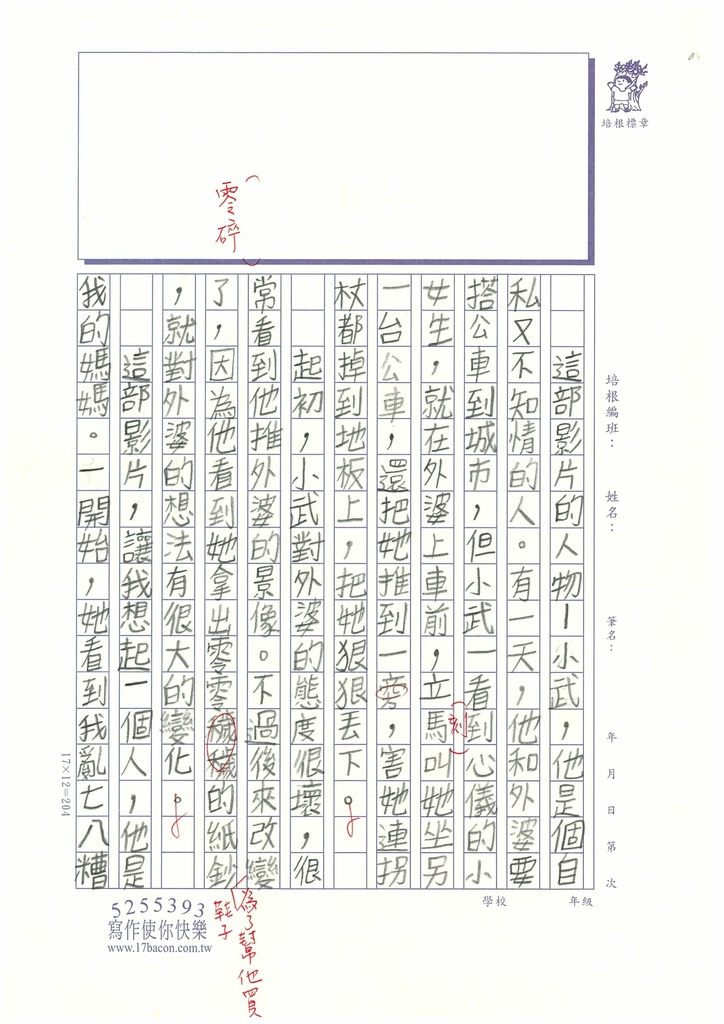 培根標章
培根編班：　姓名：　筆名：　年　月　日　第　次
學校　年級
這部影片的人物－小武，他是個自
私又不知情的人。有一天，他和外婆要
搭公車到城市，但小武一看到心儀的小
女生，就在外婆上車前，立馬叫她坐另
刻
一台公車，還把她推到一旁，害她連拐
杖都掉到地板上，把她狠狠丟下。
起初，小武對外婆的態度很壞，很
常看到他推外婆的景像。不過後來改變
了，因為他看到她拿出零零穢穢的紙鈔
零碎
為了幫他買
鞋子
，就對外婆的想法有很大的變化。
這部影片，讓我想起一個人，他是
我的媽媽。一開始，她看到我亂七八糟
17×12=204
5255393
寫作使你快樂
www.17bacon.com.tw